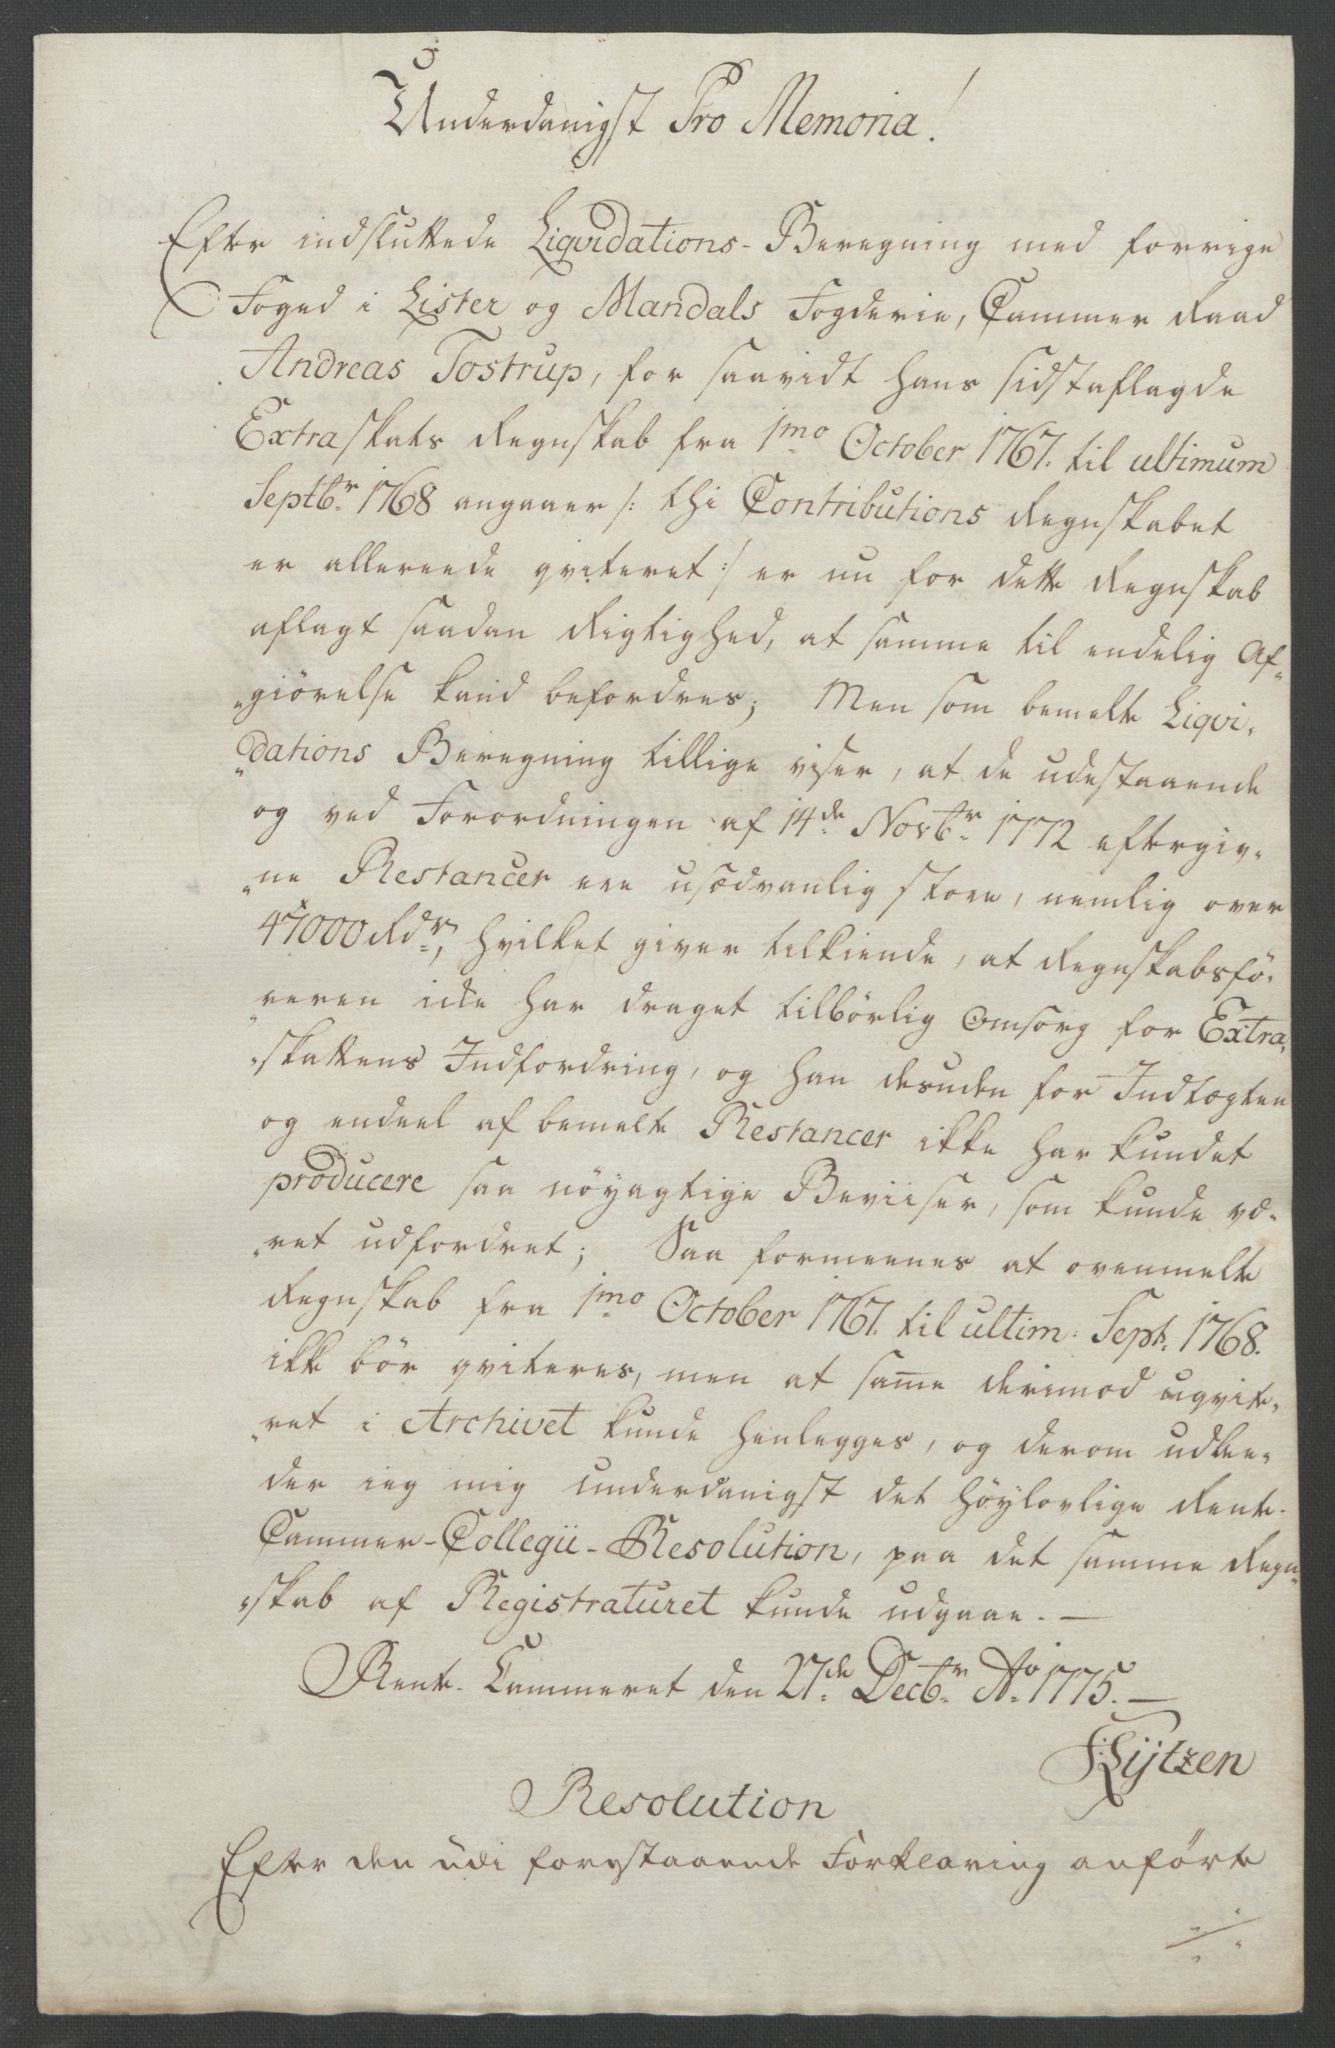 Underdanigst Pro Memoria!
Efter indsluttede Liqvidations-Beregning med forrige
Foged i Lister og Mandals Fogderie, Cammer Raad
Andreas Tostrup, for saavidt hans sidst aflagde
Extraskats Regnskab fra 1mo October 1767. til ultimum
Septbr. 1768 angaaer /: thi Contributions Regnskabet
er allereede qviteret :/ er nu for dette Regnskab
aflagt saadan Rigtighed, at samme til endelig Af-
giörelse kand befordres; Men som bemelte Liqvi-
dations Beregning tillige viser, at de udestaaende
og ved Forordningen af 14de Novbr. 1772 eftergiv-
ne Restancer ere usædvanlig store, nemlig over
47000 Rdr, hvilket giver tilkiende, at Regnskabsfö-
reren icke har draget tilbörlig Omsorg for Extra-
skattens Indfordring, og han desuden for Indtægten
og endeel af bemelte Restancer ikke har kundet
producere saa nöyagtige Beviiser, som kunde væ-
ret udfordret; Saa formeenes at ovenmelte
Regnskab fra 1mo October 1767. til ultim: Sept. 1768.
ikke bör qviteres, men at same derimod uqvite-
ret i Archivet kunde henlegges, og derom udbee-
der ieg mig underdanigst det Höylovlige Rente-
Cammer-Collegii-Resolution, paa det samme Regn-
skab af Registraturet kunde udgaae. —
Rente-Cammeret den 27de Decbr. Ao. 1775. —
Lÿtzen
Resolution
Efter den udi forestaaende Forklaring anförte